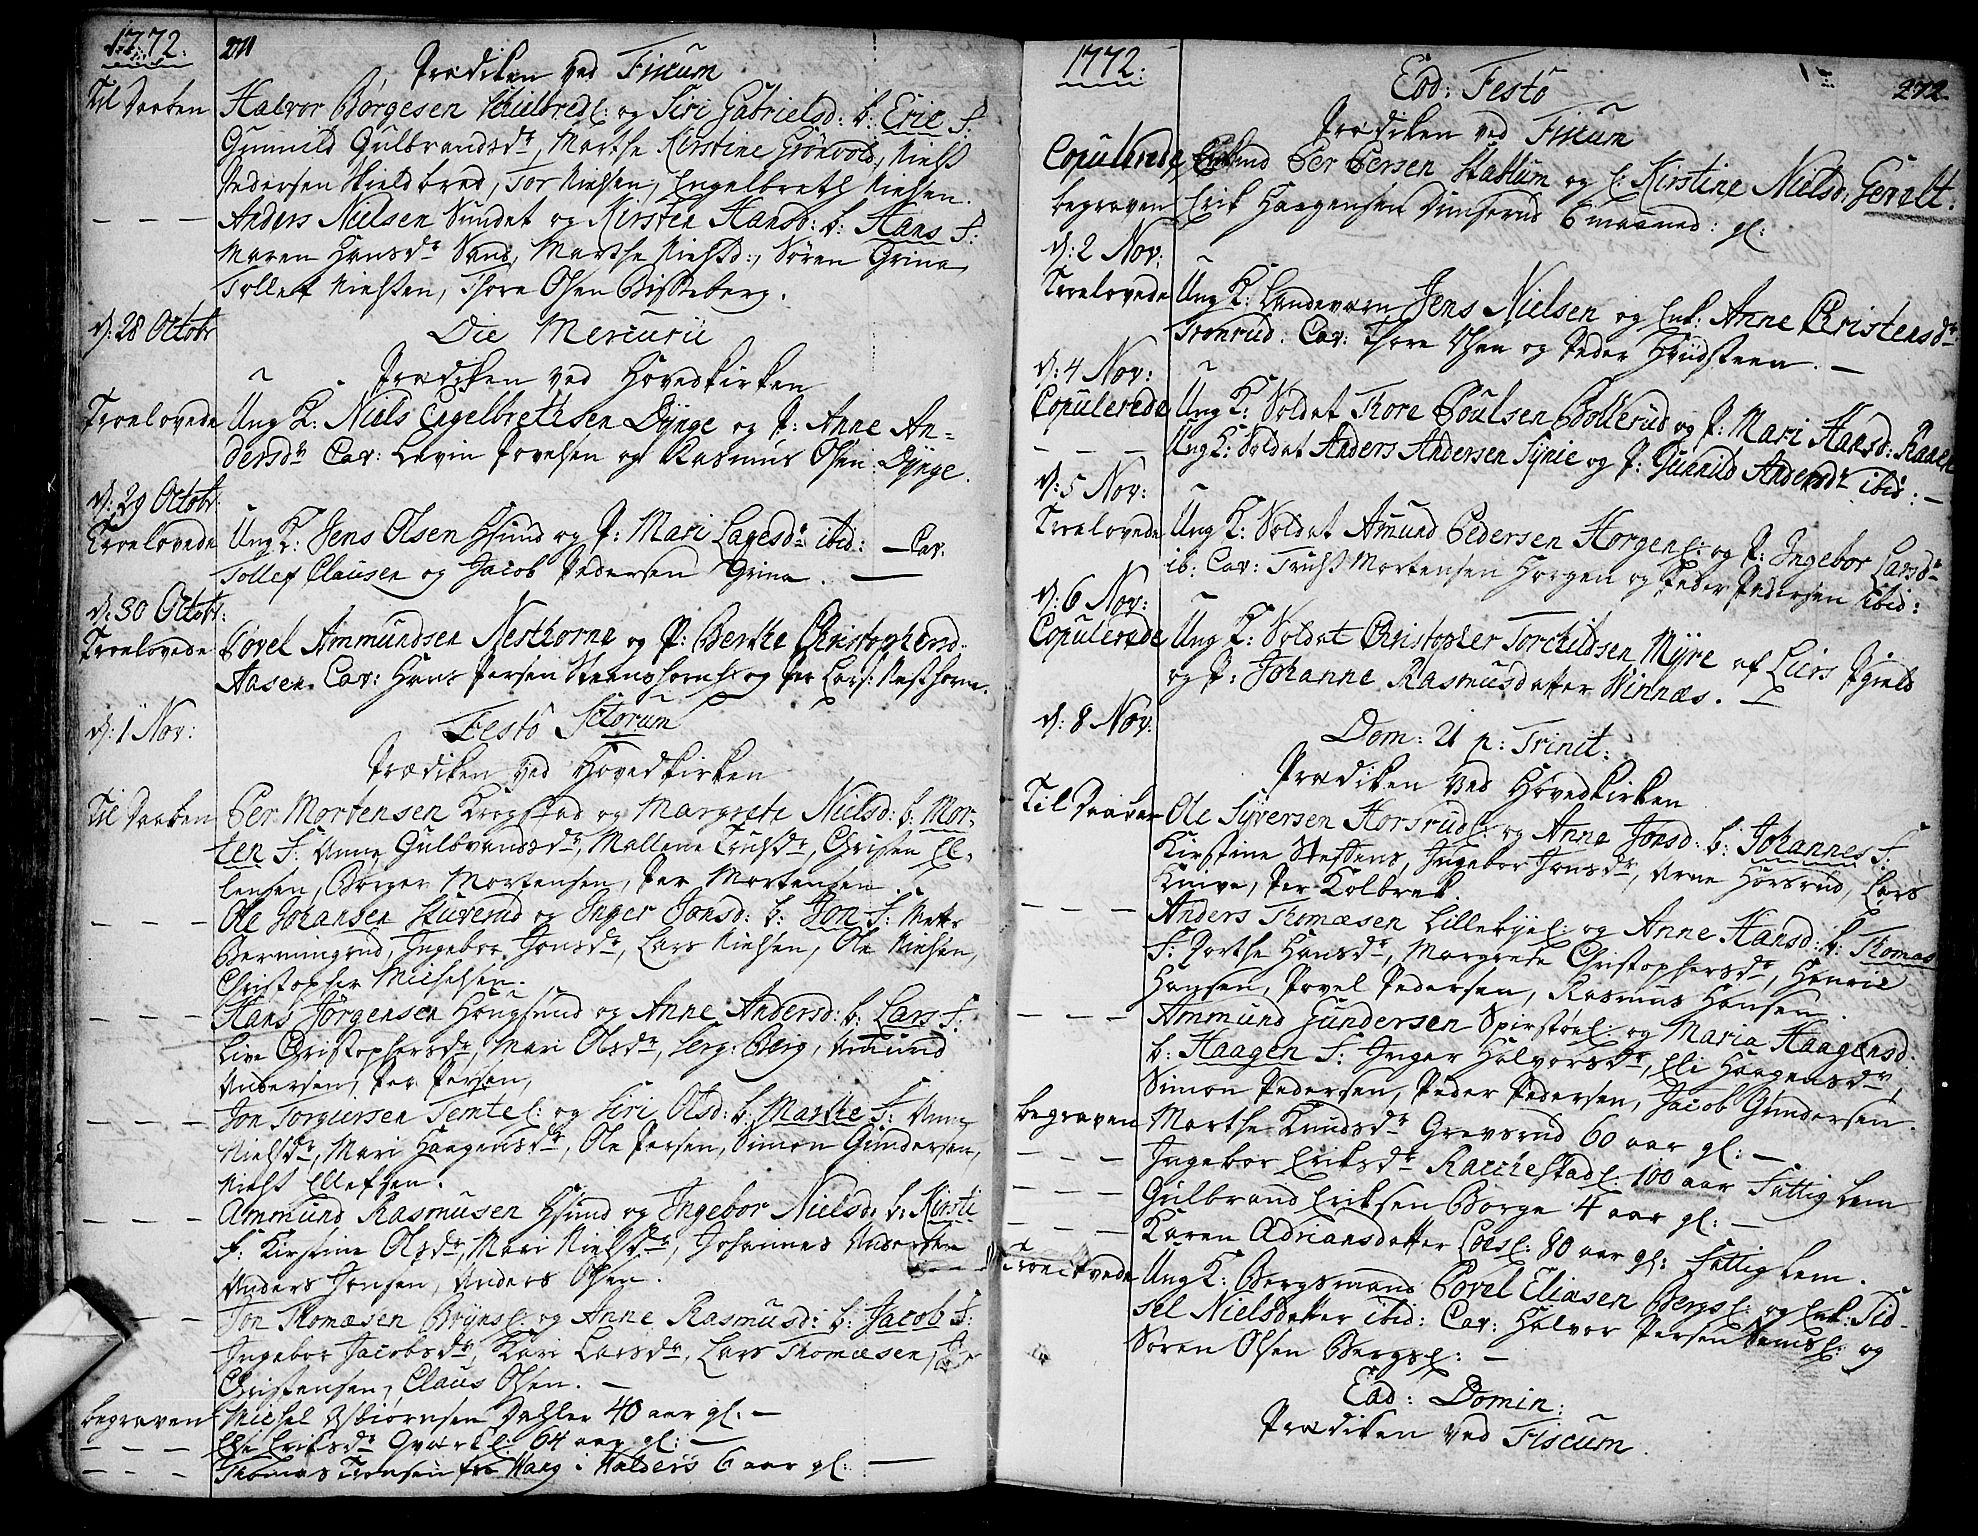 1772.
271
Prædiken ved Fiscum
Til Daaben
Halvor Børgesen og Siri Gabrielsd: b: Eric F:
Gunnild Gulbrandsdr, Marthe Kirstine Grönvold, Niels
Pedersen Skieldbred, Tor Nielsen, Engelbreth Nielsen.
— — — Anders Nielsen Sundet og Kirstie Hansd: b: Hans F:
Maren Hansdr Sand, Marthe Nielsd:, Søren Grina,
Tollef Nielsen, Thore Olsen Bisseberg.
d: 28 Octobr
Die Mercurii
Prædiken ved Hovedkirken
Troelovede
Ung K: Niels Engelbrethsen Dÿnge og P: Anne An-
dersdr Cav: Levin Povelsen og Rasmus Olsen Dÿnge.
d: 29 Octobr.
Troelovede
Ung K: Jens Olsen Hsund og P: Mari Lagesdr ibid: — Cav.
Tollef Clausen og Jacob Pedersen Grina. —
d: 30 Octobr:
Troelovede
Povel Ammundsen Nesthorne og P: Berthe Christophersd:
Aasen. Cav: Hans Persen Steenshorne og Per Lars: Nesthorne.
d: 1 Nov:
Festo Sctorum
Prædiken ved Hovedkirken
Til Daaben
Per Mortensen Krogstad og Margrete Nielsd: b: Mor-
ten F: Anne Gulbrandsdr, Mallene Trulsdr, Christen El-
lensen, Børger Mortensen, Per Mortensen.
— — — Ole Johansen Stuverud og Inger Jonsd: b: Jon F: Mette
Bermingrud, Ingebor Jonsdr, Lars Nielsen, Ole Nielsen,
Christopher Mielsen.
— — — Hans Jørgensen Hougsund og Anne Andersd: b: Lars F:
Live Christophersdr, Mari Olsdr, Serg: Berg, Amund
Andersen, Per Persen,
— — — Jon Torgiersen Temte og Siri Olsd: b: Marthe F: Anne
Nielsdr, Mari Haagensdr, Ole Persen, Simon Gundersen,
Niels Ellefsen.
— — — Ammund Rasmusen Hsund og Ingebor Nielsd: b: Kirsti
F: Kirstine Olsdr, Mari Nielsdr, Johannes Andersen
Anders Jonsen, Anders Olsen.
— — Jon Thomæsen Brÿns og Anne Rasmusd: b: Jacob F:
Ingebor Jacobsdr, Kari Larsdr, Lars Thomæsen,
Christensen, Claus Olsen. —
begraven
Michel Asbiørnsen Dahler 40 aar gl: —
— — — Else Eriksdr 64 aar gl: —
— — — Thomas Tronsen fra Vang i Walders 6 aar gl: —
1772.
272
Eod: Festo
Prædiken ved Fiscum
Copulerede,
Per Persen Stablum og E: Kirstine Nielsd: Gernlt.
begraven
Erik Haagensen Dunserud 6 maaned: gl:
d: 2 Nov:
Troelovede
Ung K: Landeværn Jens Nielsen og Enk: Anne Christensdr
Tronrud. Cav: Thore Olsen og Peder Hvidsteen. —
d: 4 Nov:
Copulerede
Ung K: Soldat Thore Poulsen Bollerud og P: Mari Hansd: Raaen
— — — Ung K: Soldat Anders Andersen Synie og P: Gunild Andersdr ibid: —
d: 5 Nov:
Troelovede
Ung K: Soldat Amund Pedersen Horgen og P: Ingebor Larsdr
ib: Cav: Truls Mortensen Horgen og Peder Pedersen ibid:
d: 6 Nov:
Copulerede
Ung K: Soldat Christopher Torchildsen Mÿre af Liers Pgield
og P: Johanne Rasmusdatter Winnæs. —
d: 8 Nov:
Dom: 21 p: Trinit:
Prædiken ved Hovedkirken
Til Daaben
Ole Syversen Horsrud og Anne Jonsd: b: Johannes F:
Kirstine Steffens, Ingebor Jonsdr, Arne Horsrud, Lars
Knive, Per Kolbrek.
— — — Anders Thomæsen Lillebye og Anne Hansd: b: Thomas
F: Dorthe Hansdr, Margrete Christophersdr, Henric
Hansen, Povel Pedersen, Rasmus Hansen.
— — — Ammund Gundersen Spirstøe og Maria Haagensd:
b: Haagen F: Inger Halvorsdr, Eli Haagensdr,
Simon Pedersen, Peder Pedersen, Jacob Gundersen.
begraven
Marthe Knudsdr Grevsrud 60 aar gl: —
— — — Ingebor Eriksdr Racchestad 100 aar Fattig Lem
— — — Gulbrand Eriksen Borge 4 aar gl: —
— — — Karen Adriansdatter 80 aar gl: Fattig Lem.
Troelovede
Ung K: Bergsmand Povel Eliæsen Bergs og Enk: Sid-
sel Nielsdatter ibid: Cav: Halvor Persen Sems og
Søren Olsen Bergs —
Ead: Domin:
Prædiken ved Fiscum.